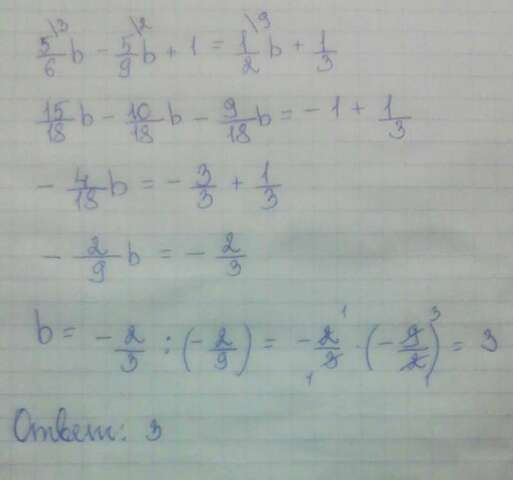 5/6 \3 b - 5/9 \2 b + 1 = 1/2 \9 b + 1/3
15/18 b - 10/18 b - 9/18 b = - 1 + 1/3
- 4/18 b = - 3/3 + 1/3
- 2/9 b = - 2/3
b = - 2/3 : (- 2/9) = - 2/3 · (- 9/2) = 3
Ответ: 3